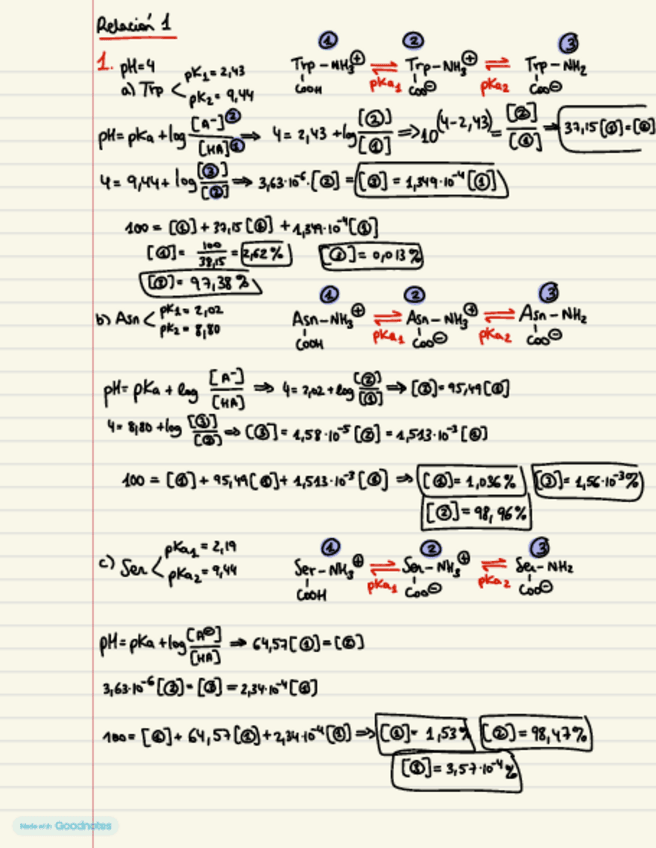 Relación 1
① ② ③
1. pH=4
Trp-NH₃⊕ ⇌ Trp-NH₃⊕ ⇌ Trp-NH₂
a) Trp < pK₁=2,43
pK₂=9,44
COOH pKa₁ COO⊖ pKa₂ COO⊖
pH=pKa+log [A⁻]②/[HA]① ⇒ 4=2,43+log [②]/[①] ⇒ 10^(4-2,43) = [②]/[①] ⇒ 37,15[①]=[②]
4=9,44+log [③]/[②] ⇒ 3,63·10⁻⁶·[②] = [③] = 1,349·10⁻⁴[①]
100=[①]+37,15[①]+1,349·10⁻⁴[①]
[①]= 100/38,15 = 2,62% [③]=0,013%
[②]=97,38%
① ② ③
b) Asn < pK₁=2,02
pK₂=8,80
Asn-NH₃⊕ ⇌ Asn-NH₃⊕ ⇌ Asn-NH₂
COOH pKa₁ COO⊖ pKa₂ COO⊖
pH=pKa+log [A⁻]/[HA] ⇒ 4=2,02+log [②]/[①] ⇒ [②]=95,49[①]
4=8,80+log [③]/[②] ⇒ [③]=1,58·10⁻⁵[②]=1,513·10⁻³[①]
100=[①]+95,49[①]+1,513·10⁻³[①] ⇒ [①]=1,036% [③]=1,56·10⁻³%
[②]=98,96%
① ② ③
c) Ser < pKa₁=2,19
pKa₂=9,44
Ser-NH₃⊕ ⇌ Ser-NH₃⊕ ⇌ Ser-NH₂
COOH pKa₁ COO⊖ pKa₂ COO⊖
pH=pKa+log [A⊖]/[HA] ⇒ 64,57[①]=[②]
3,63·10⁻⁶[②]=[③]=2,34·10⁻⁴[①]
100=[①]+64,57[①]+2,34·10⁻⁴[①] ⇒ [①]=1,53% [②]=98,47%
[③]=3,57·10⁻⁴%
Made with Goodnotes